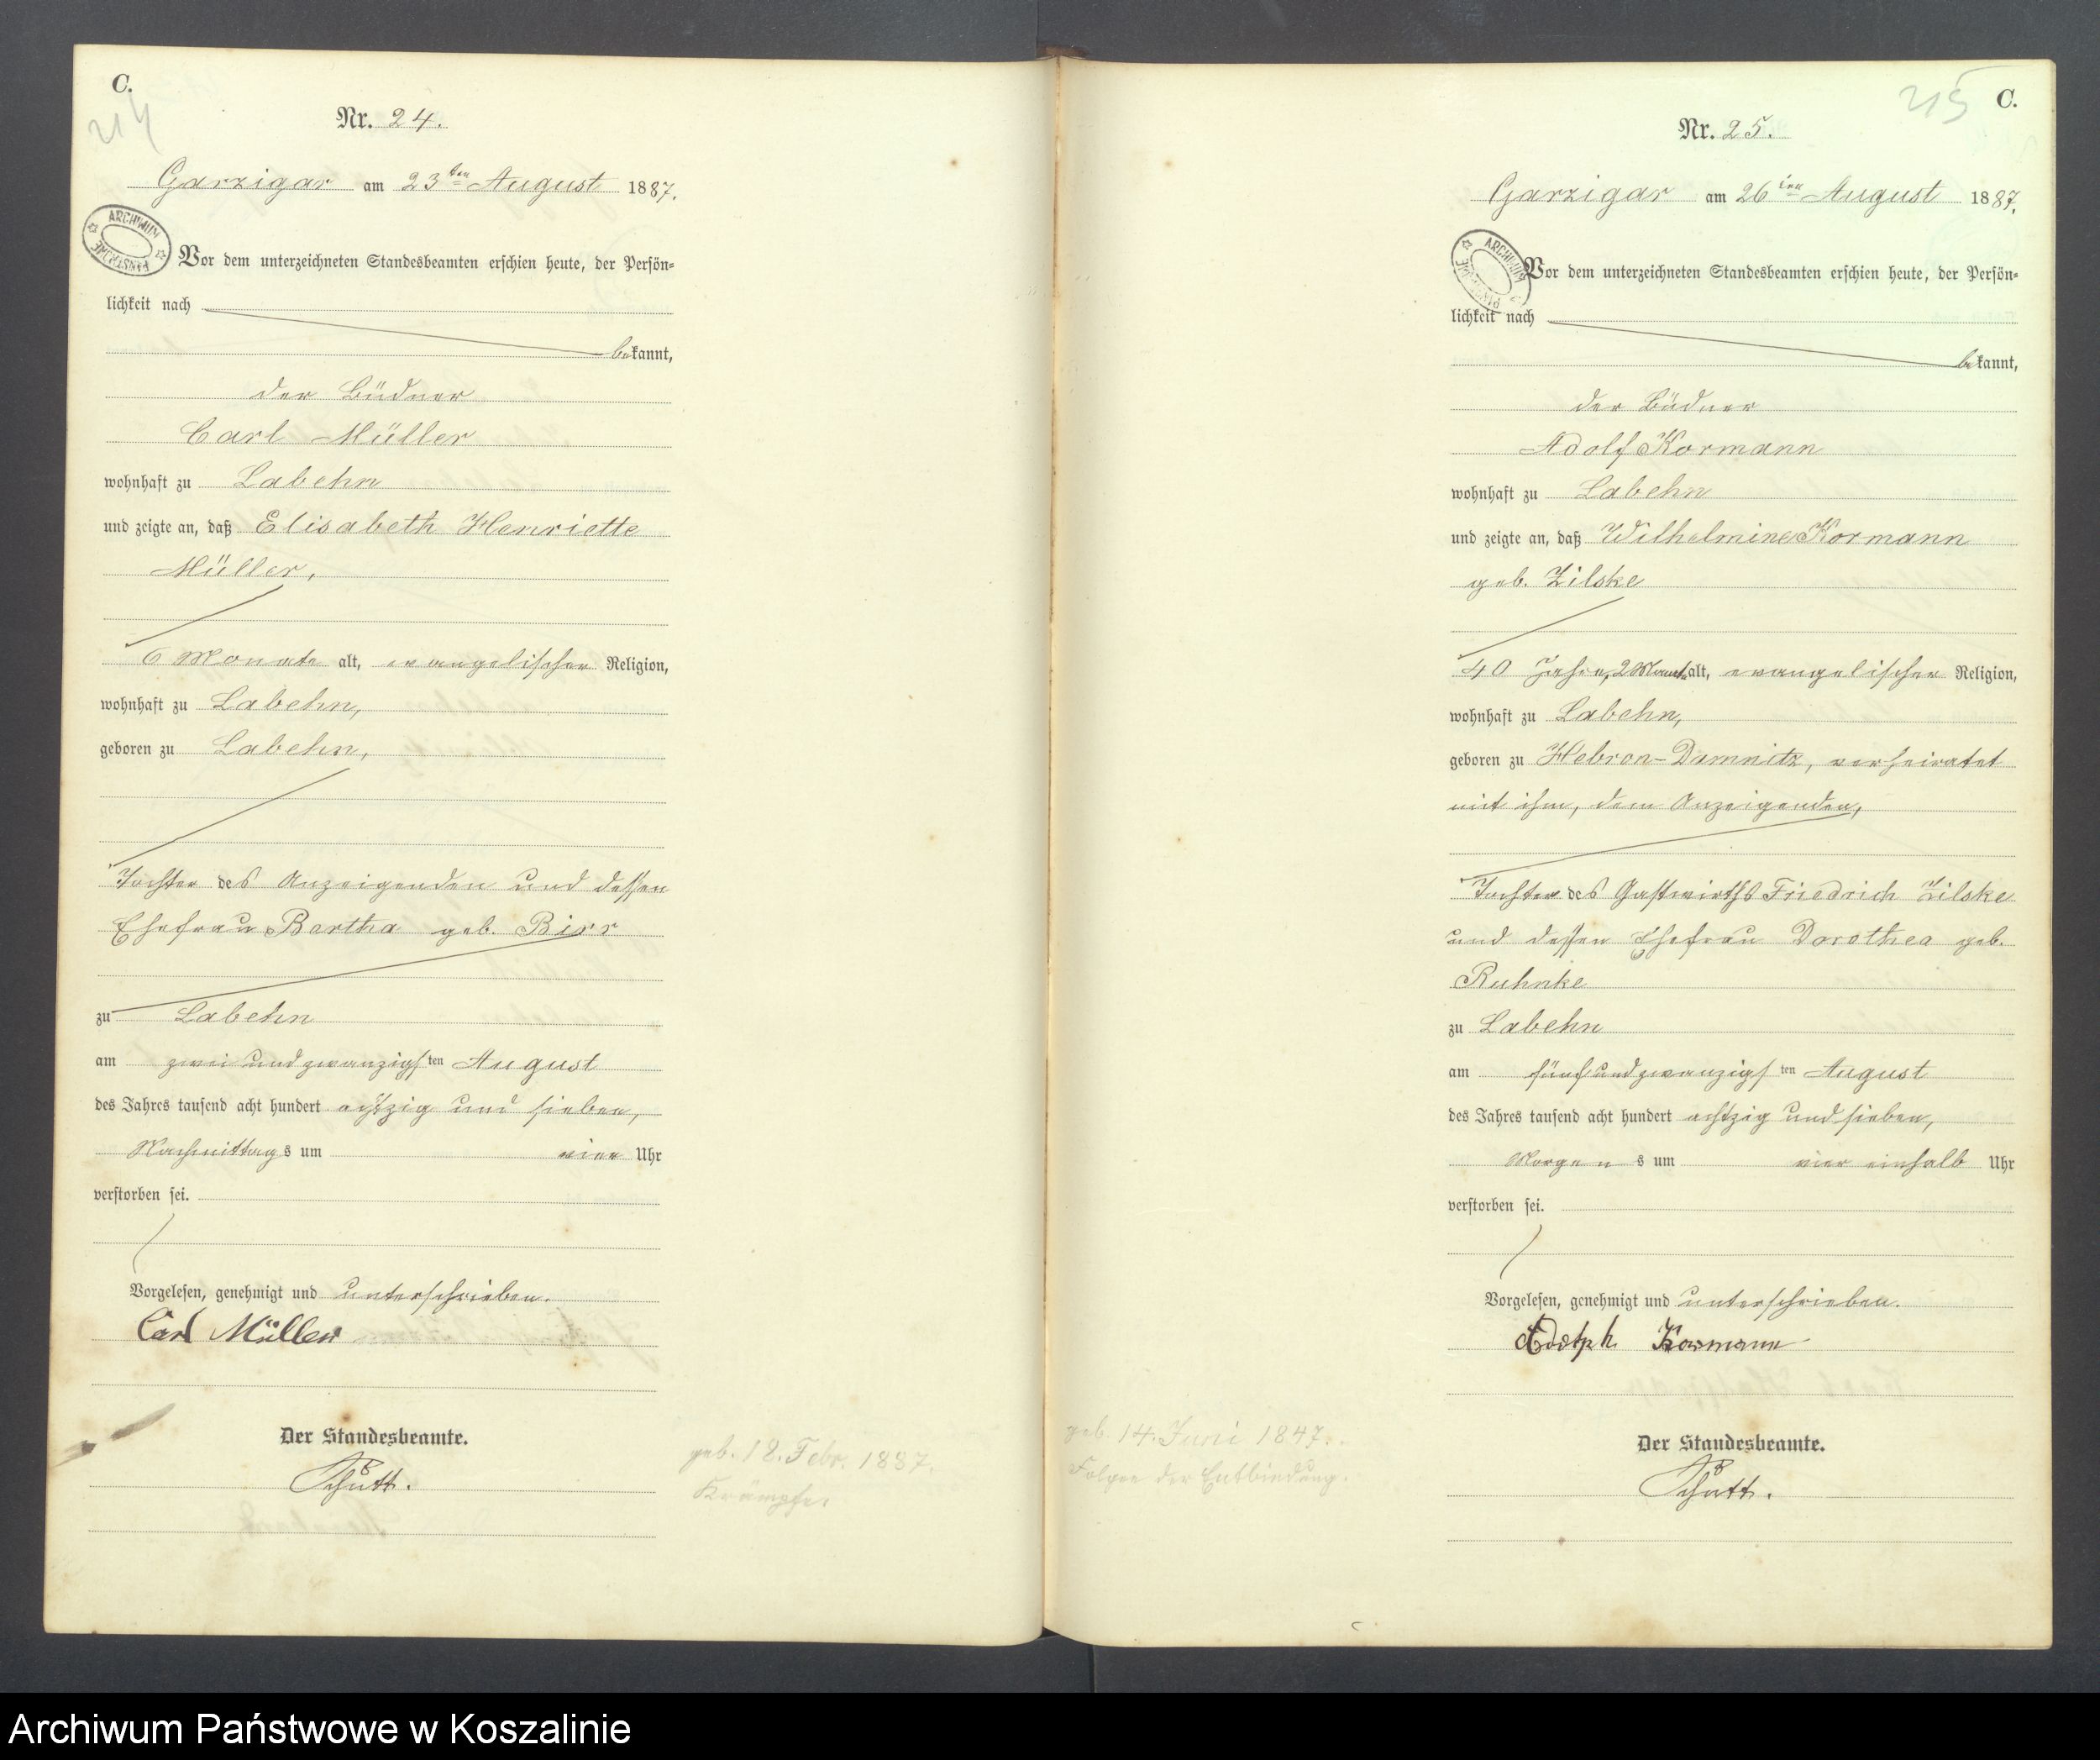 C.
214
Nr. 24.
Garzigar am 23ten August 1887.
ARCHIWUM PAŃSTWOWE
Vor dem unterzeichneten Standesbeamten erschien heute, der Persön=
lichkeit nach
bekannt,
der Büdner
Carl Müller
wohnhaft zu Labehn
und zeigte an, daß Elisabeth Henriette
Müller,
6 Monate alt, evangelischer Religion,
wohnhaft zu Labehn,
geboren zu Labehn,
Tochter des Anzeigenden und dessen
Ehefrau Bertha geb. Birr
zu Labehn
am zwei und zwanzigsten August
des Jahres tausend acht hundert achtzig und sieben,
Nachmittags um vier Uhr
verstorben sei.
Vorgelesen, genehmigt und unterschrieben.
Carl Müller
Der Standesbeamte.
Schütt.
geb. 18. Febr. 1887.
Krämpfe.
215
C.
Nr. 25.
Garzigar am 26ten August 1887.
ARCHIWUM PAŃSTWOWE
Vor dem unterzeichneten Standesbeamten erschien heute, der Persön=
lichkeit nach
bekannt,
der Büdner
Adolf Kormann
wohnhaft zu Labehn
und zeigte an, daß Wilhelmine Kormann
geb. Zilske
40 Jahre, 2 Monate alt, evangelischer Religion,
wohnhaft zu Labehn,
geboren zu Hebron-Damnitz, verheiratet
mit ihm, dem Anzeigenden,
Tochter des Gastwirths Friedrich Zilske
und dessen Ehefrau Dorothea geb.
Ruhnke
zu Labehn
am fünf und zwanzigsten August
des Jahres tausend acht hundert achtzig und sieben,
Morgens um vier einhalb Uhr
verstorben sei.
Vorgelesen, genehmigt und unterschrieben.
Adolph Kormann
Der Standesbeamte.
Schütt.
geb. 14. Juni 1847.
Folgen der Entbindung.
Archiwum Państwowe w Koszalinie